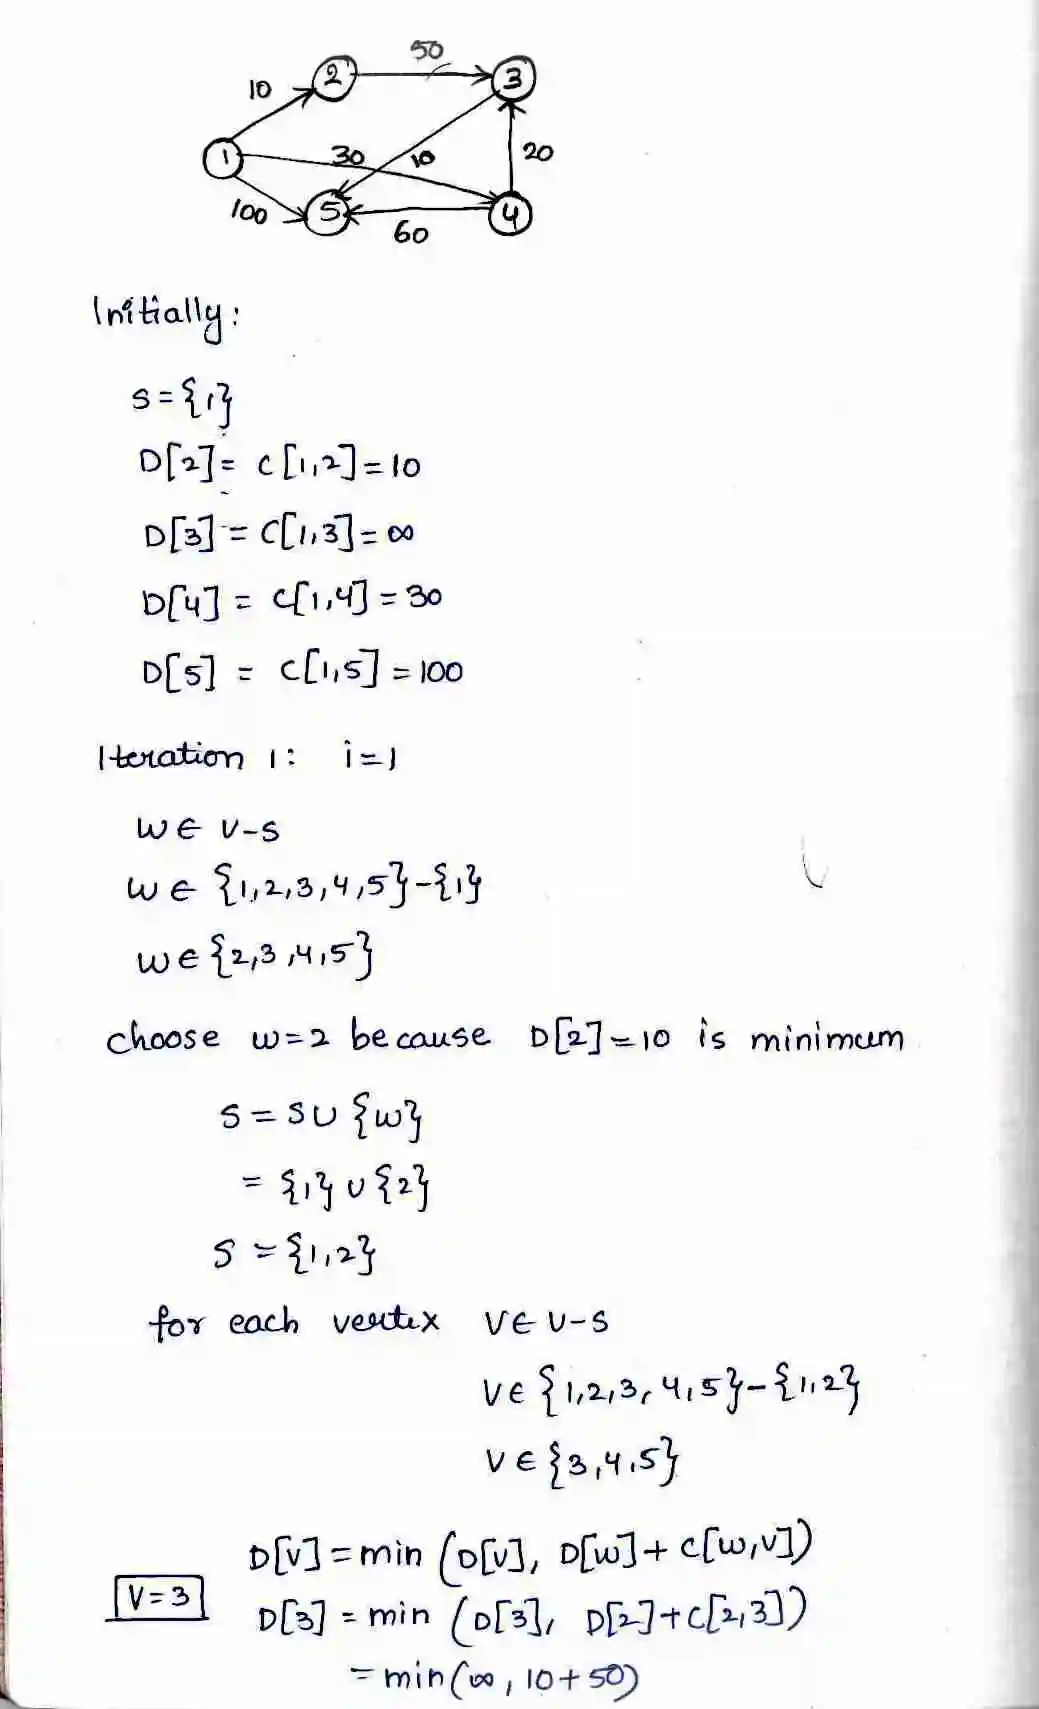 50
2
3
10
1
30
10
20
100
5
4
60
Initially:
S={1}
D[2]= C[1,2]=10
D[3]= C[1,3]=∞
D[4] = C[1,4]=30
D[5] = C[1,5]=100
Iteration 1: i=1
W∈ V-S
W∈ {1,2,3,4,5}-{1}
W∈ {2,3,4,5}
choose w=2 because D[2]=10 is minimum
S=SU {w}
= {1} U {2}
S={1,2}
for each vertex V∈ V-S
V∈ {1,2,3,4,5}-{1,2}
V∈ {3,4,5}
D[V]=min (D[V], D[w]+ C[w,v])
V=3 D[3] = min (D[3], D[2]+C[2,3])
=min(∞, 10+50)